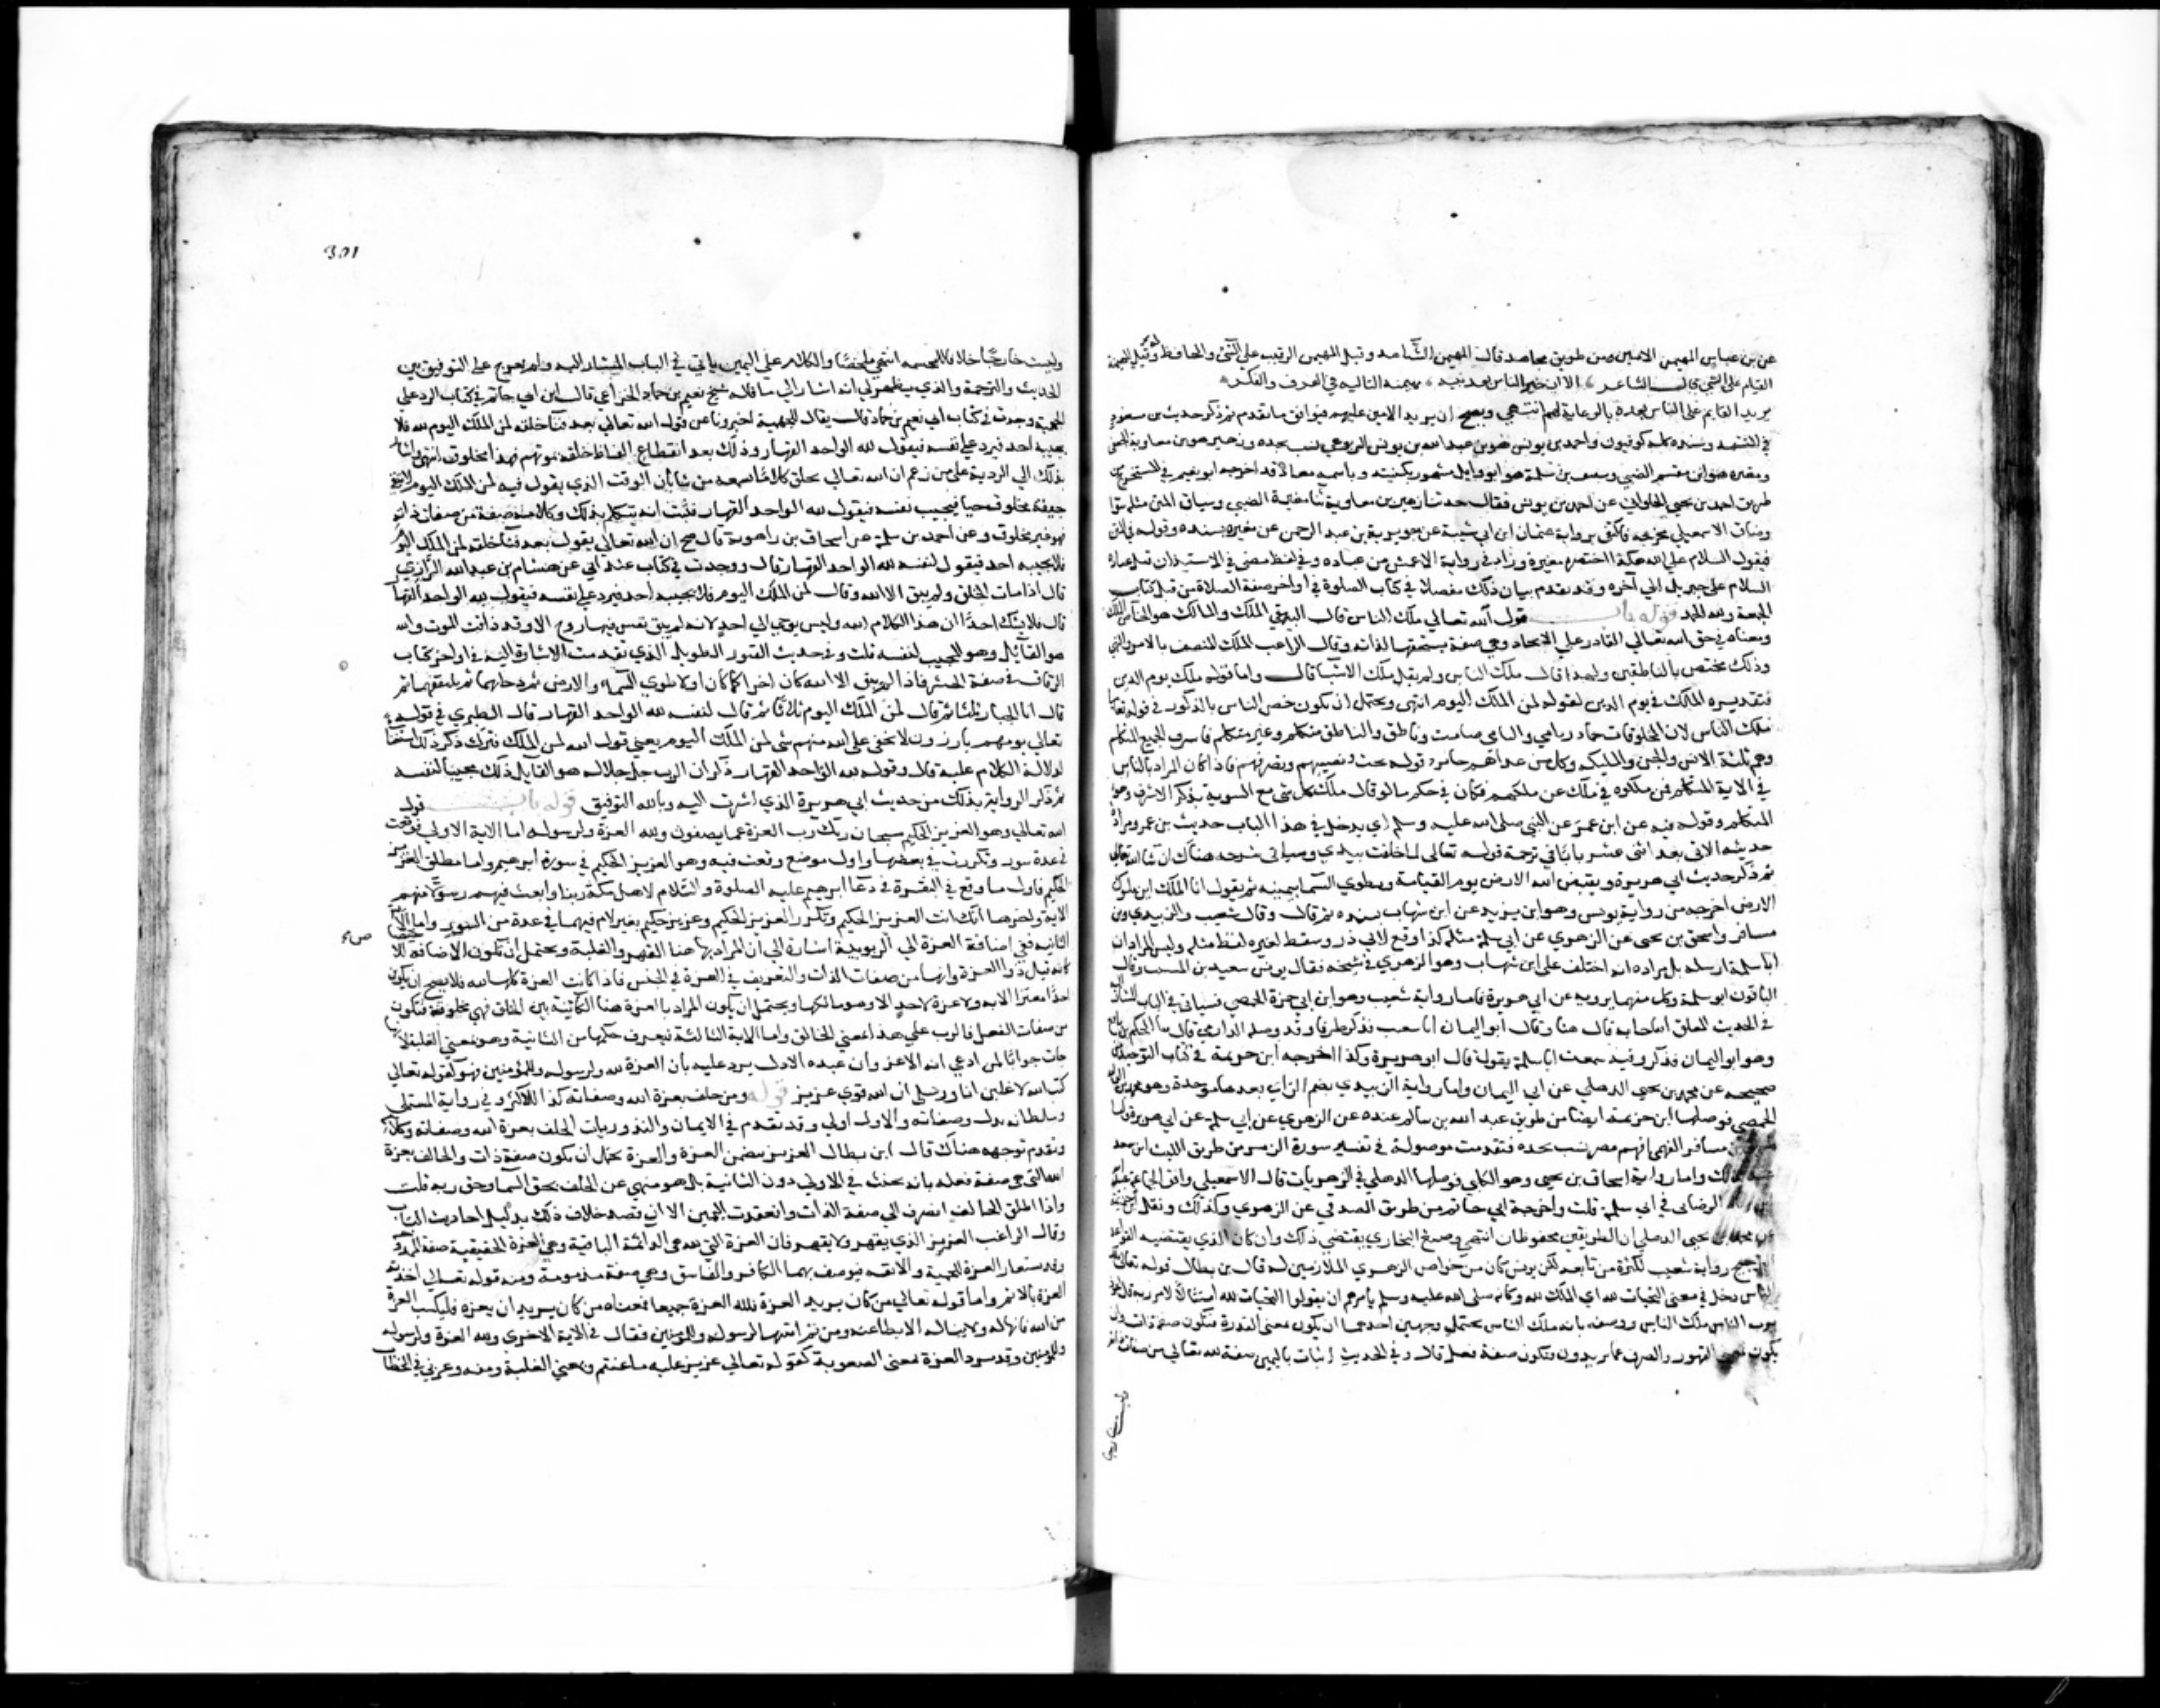 عن بن عباس المهيمن الامين ومن طريق مجاهد قال المهيمن الشاهد وقيل المهيمن الرقيب على الشي والحافظ وقيل الهيمنة
القيام على الشي قال الشاعر الا ان خير الناس بعد نبيه مهيمنه التاليه في العرف والنكر
يريد القايم على الناس بعده بالرعاية لهم انتهى ويصح ان يريد الامين عليهم فيوافق ما تقدم ثم ذكر حديث بن مسعود
في التشهد وسنده كله كوفيون واحمد بن يونس هو بن عبد الله بن يونس اليربوعي نسب لجده وزهير هو بن معاوية الجعفي
ومغيره هو ابن مقسم الضبي وشقيق بن سلمة هو ابو وايل مشهور بكنيته وباسمه معا وقد اخرجه ابو نعيم في المستخرج من
طريق احمد بن يحيى الحلواني عن احمد بن يونس فقال حدثنا زهير بن معاوية ثنا مغيرة الضبي وساق المتن مثله سوا
وضاق على الاسمعيلي مخرجه فاكتفى برواية عثمان ابن ابي شيبة عن جرير عن مغيره بسنده وقوله في المتن
فيقول السلام على الله هكذا اختصره مغيرة وزاد في رواية الاعمش من عباده وفي لفظ مضى في الاستيذان قبل عباده
السلام على جبريل الى آخره وقد تقدم بيان ذلك مفصلا في كتاب الصلوة في اواخر صفة الصلاة من قبل كتاب
الجمعة ولله الحمد قوله باب قول الله تعالى ملك الناس قال البيهقي الملك والمالك هو الخاص الملك
ومعناه في حق الله تعالى القادر على الايجاد وهي صفة يستحقها لذاته وقال الراغب الملك المتصف بالامر والنهي
وذلك مختص بالناطقين ولهذا قال ملك الناس ولم يقل ملك الاشيا قال واما قوله ملك يوم الدين
فتقديره المالك في يوم الدين لقوله لمن الملك اليوم انتهى ويحتمل ان يكون خص الناس بالذكر في قوله تعالى
ملك الناس لان المخلوقات جماد ونامي والنامي صامت وناطق والناطق متكلم وغير متكلم فاشرف الجميع المتكلم
وهم ثلثة الانس والجن والمليكه وكل من عداهم جايز دخوله تحت قبضتهم وتصرفهم فاذا كان المراد بالناس
في الاية المتكلم فمن ملكوه في ملك من ملكهم فكان في حكم ما لو قال ملك كل شي مع التنويه بذكر الاشرف وهو
المتكلم وقوله فيه عن ابن عمر عن النبي صلى الله عليه وسلم اي يدخل في هذا الباب حديث بن عمر ومراده
حديثه الاتي بعد اثنى عشر بابا في ترجمة قوله تعالى لما خلقت بيدي وسياتي شرحه هناك ان شا الله تعالى
ثم ذكر حديث ابي هريرة ويقبض الله الارض يوم القيامة ويطوي السما بيمينه ثم يقول انا الملك اين ملوك
الارض اخرجه من رواية يونس وهو ابن يزيد عن ابن شهاب بسنده ثم قال وقال شعيب والزبيدي وبن
مسافر واسحق بن يحيى عن الزهري عن ابي سلمة مثله كذا وقع لابي ذر وسقط لغيره لفظ مثله وليس المراد ان
ابا سلمة ارسله بل مراده انه اختلف على ابن شهاب وهو الزهري في شيخه فقال يونس سعيد بن المسيب وقال
الباقون ابو سلمة وكل منهما يرويه عن ابي هريرة فاما رواية شعيب وهو ابن ابي حمزة الحمصي فسياتي في الباب المشار
وهو ابو اليمان فذكره وفيه سمعت ابا سلمة يقول قال ابو هريرة وكذا اخرجه ابن خزيمة في كتاب التوحيد من
صحيحه عن محمد بن يحيى الذهلي عن ابي اليمان واما رواية الزبيدي بضم الزاي بعدها موحدة وهو محمد بن الوليد
الحمصي فوصلها ابن خزيمة ايضا من طريق عبد الله بن سالم عنه عن الزهري عن ابي سلمة عن ابي هريرة واما
مسافر الفهمي فهم مصر نسب لجده فتقدمت موصولة في تفسير سورة الزمر من طريق الليث ابن سعد
واما رواية اسحاق بن يحيى وهو الكلبي فوصلها الذهلي في الزهريات قال الاسمعيلي وافق الجماعة
في ابي سلمة قلت واخرجه ابي حاتم من طريق الصدفي عن الزهري وكذلك ونقل
يحيى الذهلي ان الطريقين محفوظان انتهى وصنع البخاري يقتضي ذلك وان كان الذي يقتضيه القواعد
رواية شعيب لكثرة من تابعه لكن يونس كان من خواص الزهري الملازمين له قال بن بطال قوله تعالى
الناس دخل في معنى التحيات لله اي الملك لله وكانه صلى الله عليه وسلم يامرهم ان يقولوا التحيات لله امتثالا لامر ربه
برب الناس ملك الناس ووصفه بانه ملك الناس يحتمل وجهين احدهما ان يكون بمعنى القدرة فتكون صفة ذات وان
يكون بمعنى القهر والصرف عما يريدون فتكون صفة فعل قال وفي الحديث اثبات باليمين صفة لله تعالى من صفات ذاته
وليست خارجا
301
وليست خارجا خلافا للمجسمه انتهى ملخصا والكلام على اليمين ياتي في الباب المشار اليه ولم يعرج على التوفيق بين
الحديث والترجمة والذي يظهر لي انه اشار الى ما قاله شيخه نعيم بن حماد الخزاعي قال ابن ابي حاتم في كتاب الرد على
الجهمية وجدت في كتاب ابي نعيم بن حماد قال يقال للجهمية اخبرونا عن قول الله تعالى بعد فنآ خلقه لمن الملك اليوم فلا
يجيبه احد فيرد على نفسه فيقول لله الواحد القهار وذلك بعد انقطاع الفاظ خلقه بموتهم فهذا مخلوق انتهى واشار
بذلك الى الرد على من زعم ان الله تعالى يخلق كلاما يسمعه من شا بان الوقت الذي يقول فيه لمن الملك اليوم لا يبقى
مخلوق حيا فيجيب نفسه فيقول لله الواحد القهار فثبت انه يتكلم بذلك وكلامه صفة من صفات ذاته
فهو غير مخلوق وعن احمد بن سلمة عن اسحاق بن راهويه قال صح ان الله تعالى يقول بعد فنآ خلقه لمن الملك اليوم
فلا يجيبه احد فيقول لنفسه لله الواحد القهار قال ووجدت في كتاب عند ابي عن هشام بن عبيد الله الرازي
قال اذا مات الخلق ولم يبق الا الله وقال لمن الملك اليوم فلا يجيبه احد فيرد على نفسه فيقول لله الواحد القهار
قال فلا يشك احدا ان هذا الكلام الله وليس يوحي الى احد لانه لم يبق نفس فيها روح الا وقد ذاقت الموت والله
هو القايل وهو المجيب لنفسه قلت وفي حديث الصور الطويل الذي تقدمت الاشارة اليه في اواخر كتاب
الرقاق في صفة الحشر فاذا لم يبق الا الله كان اخرا كما كان اولا طوى السمآ والارض ثم دحاهما ثم تلقفهما ثم
قال انا الجبار ثلثا ثم قال لمن الملك اليوم ثلاثا ثم قال لنفسه لله الواحد القهار قال الطبري في قوله
تعالى يوم هم بارزون لا يخفى على الله منهم شي لمن الملك اليوم يعني قول الله لمن الملك فترك ذكر ذلك استغنا
لدلالة الكلام عليه قال وقوله لله الواحد القهار ذكر ان الرب جل جلاله هو القايل ذلك مجيبا لنفسه
ثم ذكر الرواية بذلك من حديث ابي هريرة الذي اشرت اليه وبالله التوفيق قوله باب قول
الله تعالى وهو العزيز الحكيم سبحان ربك رب العزة عما يصفون ولله العزة ولرسوله اما الاية الاولى فوقعت
في عدة سور وتكررت في بعضها واول موضع وقعت فيه وهو العزيز الحكيم في سورة ابرهيم واما مطلق العزيز
الحكيم فاول ما وقع في البقرة في دعا ابرهيم عليه الصلوة والسلام لاهل مكة ربنا وابعث فيهم رسولا منهم
الاية واخرها انك انت العزيز الحكيم وتكرر العزيز الحكيم وعزيز حكيم بغير لام فيهما في عدة من السور واما الاية
الثانيه ففي اضافة العزة الى الربوبية اشارة الى ان المراد بها هنا القهر والغلبة ويحتمل ان تكون الاضافة للا
كانه قيل ذو العزة وانها من صفات الذات والتعريف في العزة في الجنس فاذا كانت العزة كلها لله فلا يصح ان يكون
احدا معتزا الا به ولا عزة لاحد الا وهو مالكها ويحتمل ان يكون المراد بالعزة هنا الكائنة بين الخلق فهي مخلوقة فتكون
من صفات الفعل فالرب على هذا بمعني الخالق واما الاية الثالثة فيعرف حكمها من الثانية وهو بمعني الغلبة لانها
جات جوابا لمن ادعى انه الاعز وان عبده الاذل يرد عليه بان العزة لله ولرسوله وللمؤمنين فهو كقوله تعالى
كتب الله لاغلبن انا ورسلي ان الله قوي عزيز قوله ومن حلف بعزة الله وصفاته كذا للاكثر وفي رواية المستملي
وسلطانه بدل وصفاته والاول اولى وقد تقدم في الايمان والنذور باب الحلف بعزة الله وصفاته وكلامه
وتقدم توجيهه هناك قال ابن بطال العزيز يتضمن العزة والعزة يحتمل ان يكون صفة ذات والحالف بعزة
الله التي هي صفة فعله بانه يحنث في الاولى دون الثانية بل هو منهي عن الحلف بحق السما وحق ربه قلت
واذا اطلق الحالف انصرف الى صفة الذات وانعقدت اليمين الا ان قصد خلاف ذلك بدليل احاديث الباب
وقال الراغب العزيز الذي يقهر ولا يقهر فان العزة التي لله هي الدائمة الباقية وهي العزة الحقيقية صفة الممدوحة
وقد تستعار العزة للحمية والانفه فيوصف بهما الكافر والفاسق وهي صفة مذمومة ومنه قوله تعالى اخذته
العزة بالاثم واما قوله تعالى من كان يريد العزة فلله العزة جميعا فمعناه من كان يريد ان يعزه فليكتسب العزة
من الله فانها له ولا ينال الا بطاعته ومن ثم اثبتها لرسوله وللمؤمنين فقال في الاية الاخرى ولله العزة ولرسوله
وللمؤمنين وقد ترد العزة بمعنى الصعوبة كقوله تعالى عزيز عليه ما عنتم وبمعني الغلبة ومنه وعزني في الخطاب